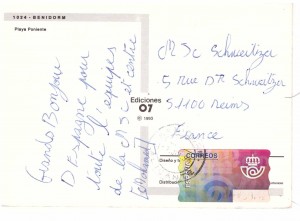 1024 - BENIDORM
Playa Poniente
Grands Bonjour
D'Espagne pour
toute l'équipes
de la MJC et centre
Ediciones
07
© 1993
MJC Schweitzer
5 rue DR Schweitzer
51100 Reims
France
Diseño y
Distribuid
CORREOS